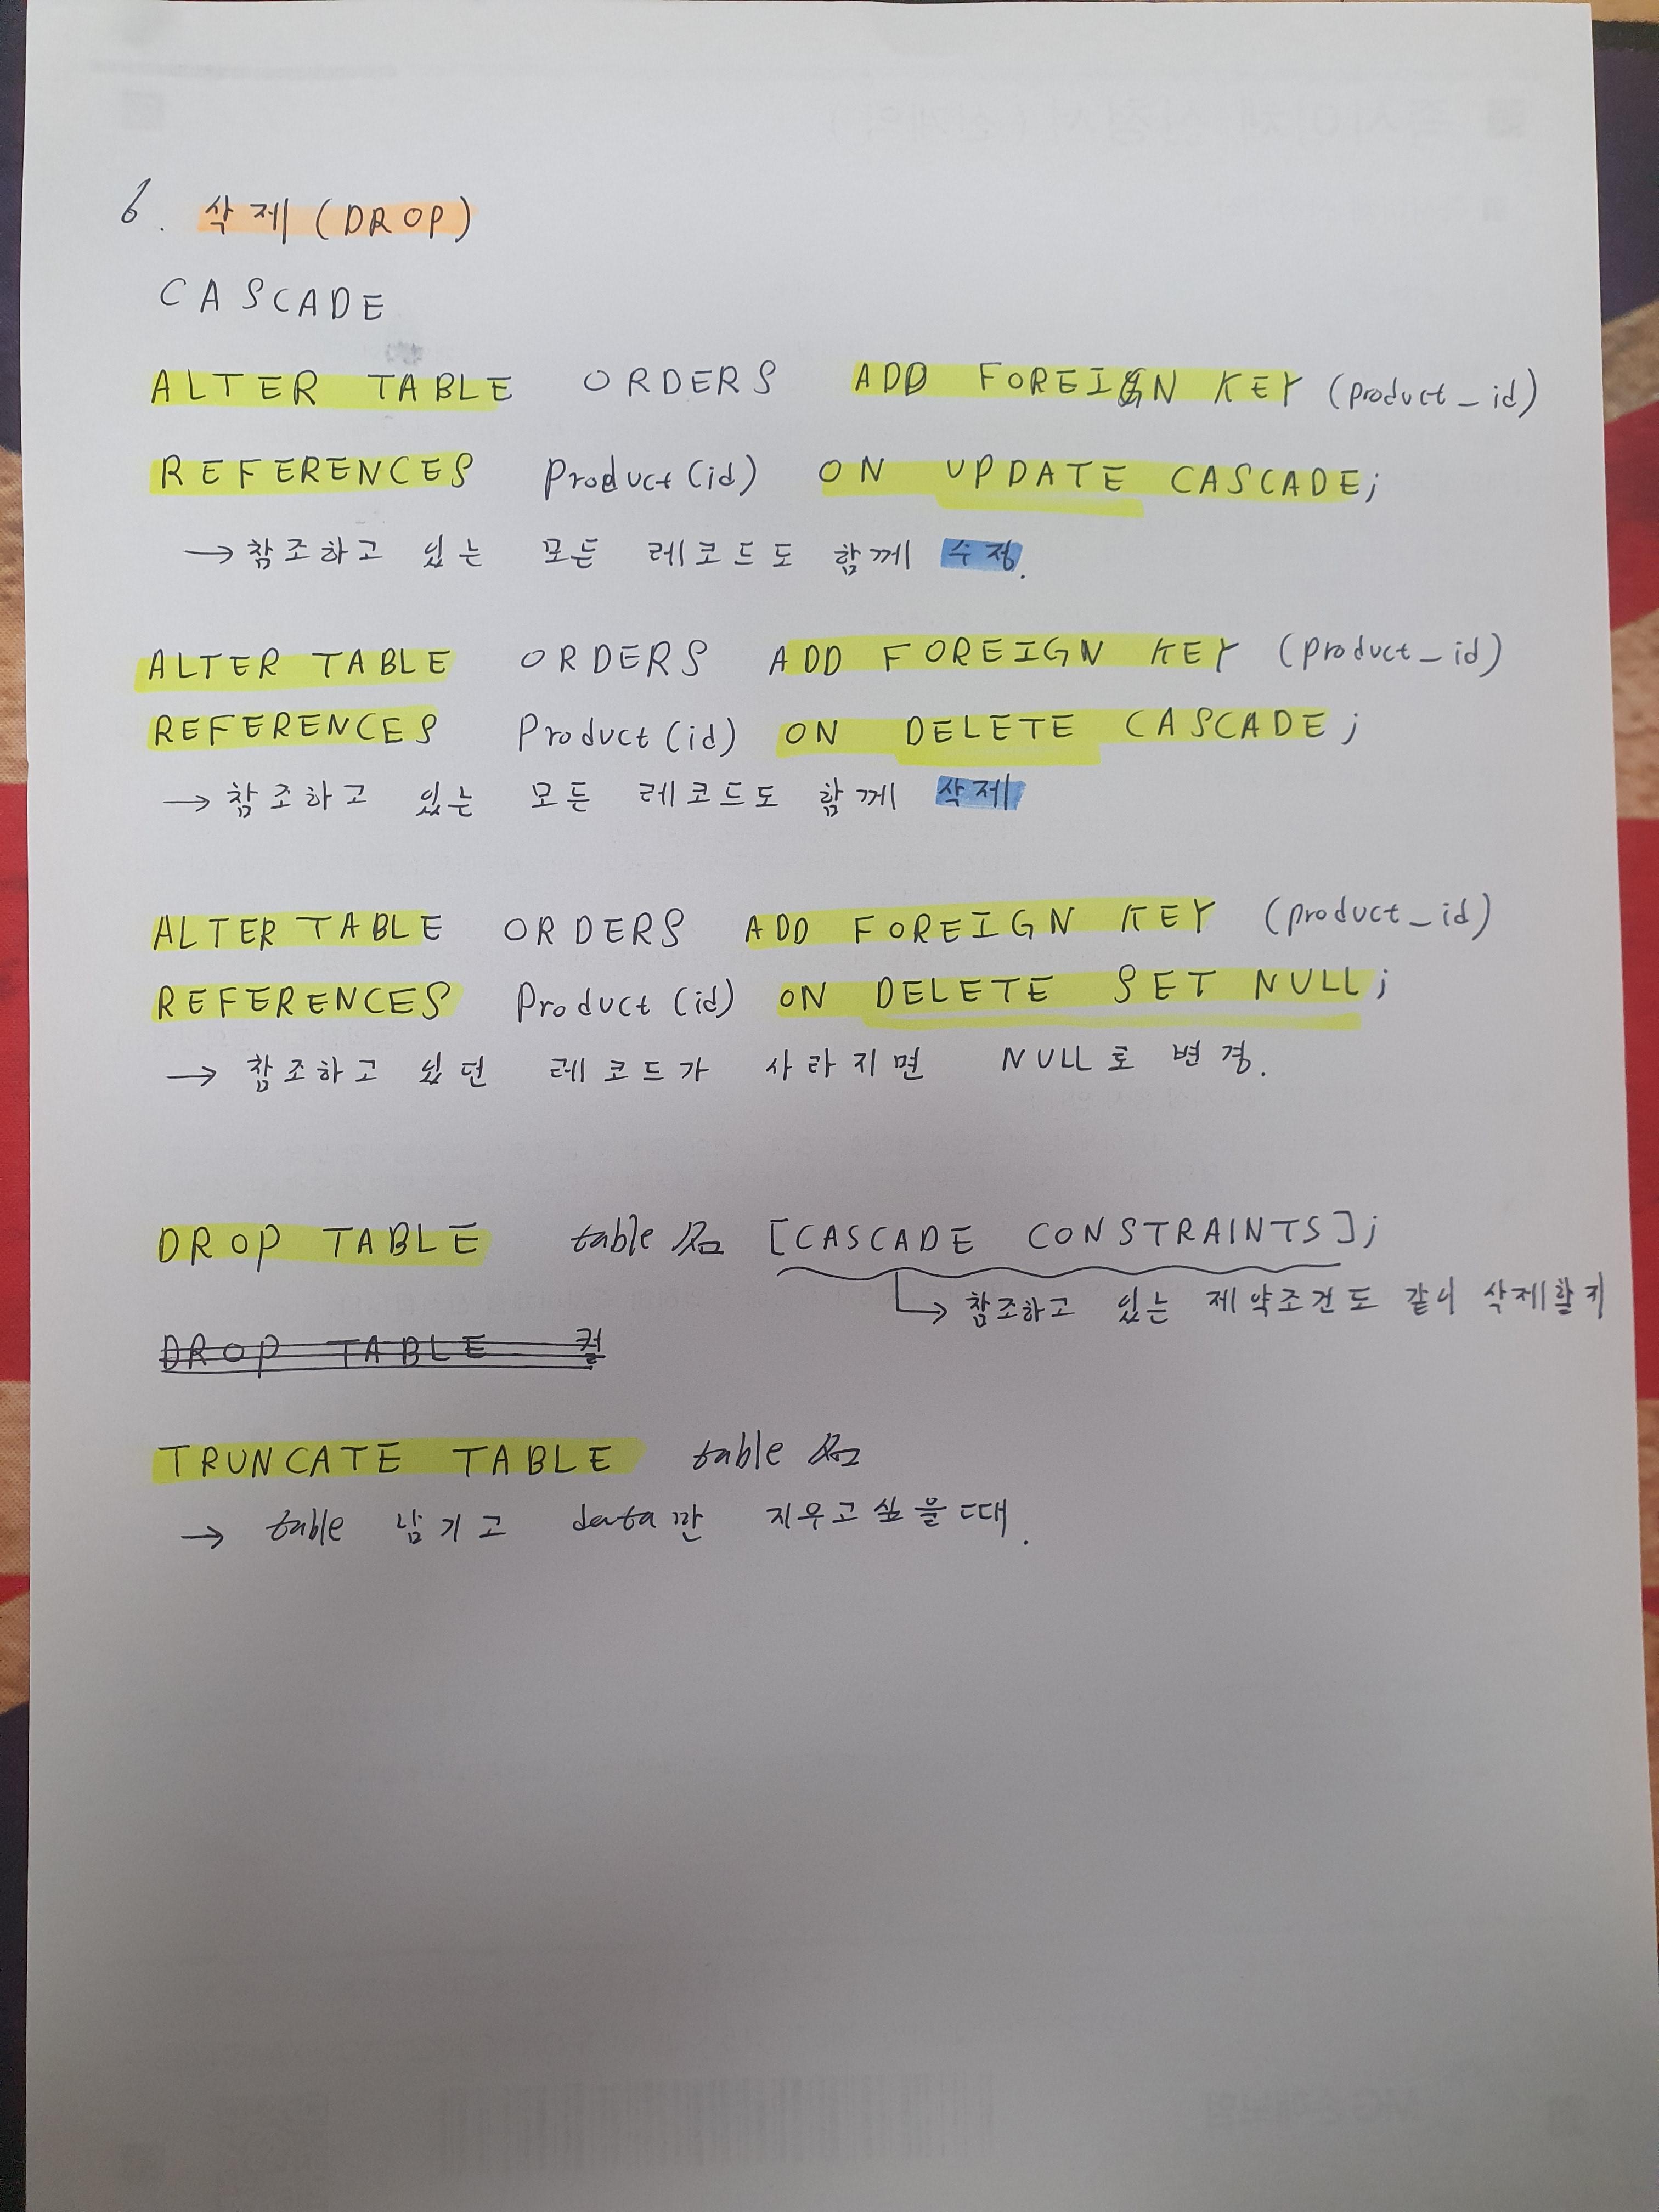 6. 삭제 (DROP)
CASCADE
ALTER TABLE ORDERS ADD FOREIGN KEY (product_id)
REFERENCES product(id) ON UPDATE CASCADE;
→ 참조하고 있는 모든 레코드도 함께 수정.
ALTER TABLE ORDERS ADD FOREIGN KEY (product_id)
REFERENCES Product(id) ON DELETE CASCADE;
→ 참조하고 있는 모든 레코드도 함께 삭제
ALTER TABLE ORDERS ADD FOREIGN KEY (product_id)
REFERENCES Product(id) ON DELETE SET NULL;
→ 참조하고 있던 레코드가 사라지면 NULL로 변경.
DROP TABLE table명 [CASCADE CONSTRAINTS];
→ 참조하고 있는 제약조건도 같이 삭제할지
DROP TABLE 컬
TRUNCATE TABLE table명
→ table 남기고 data만 지우고싶을때.